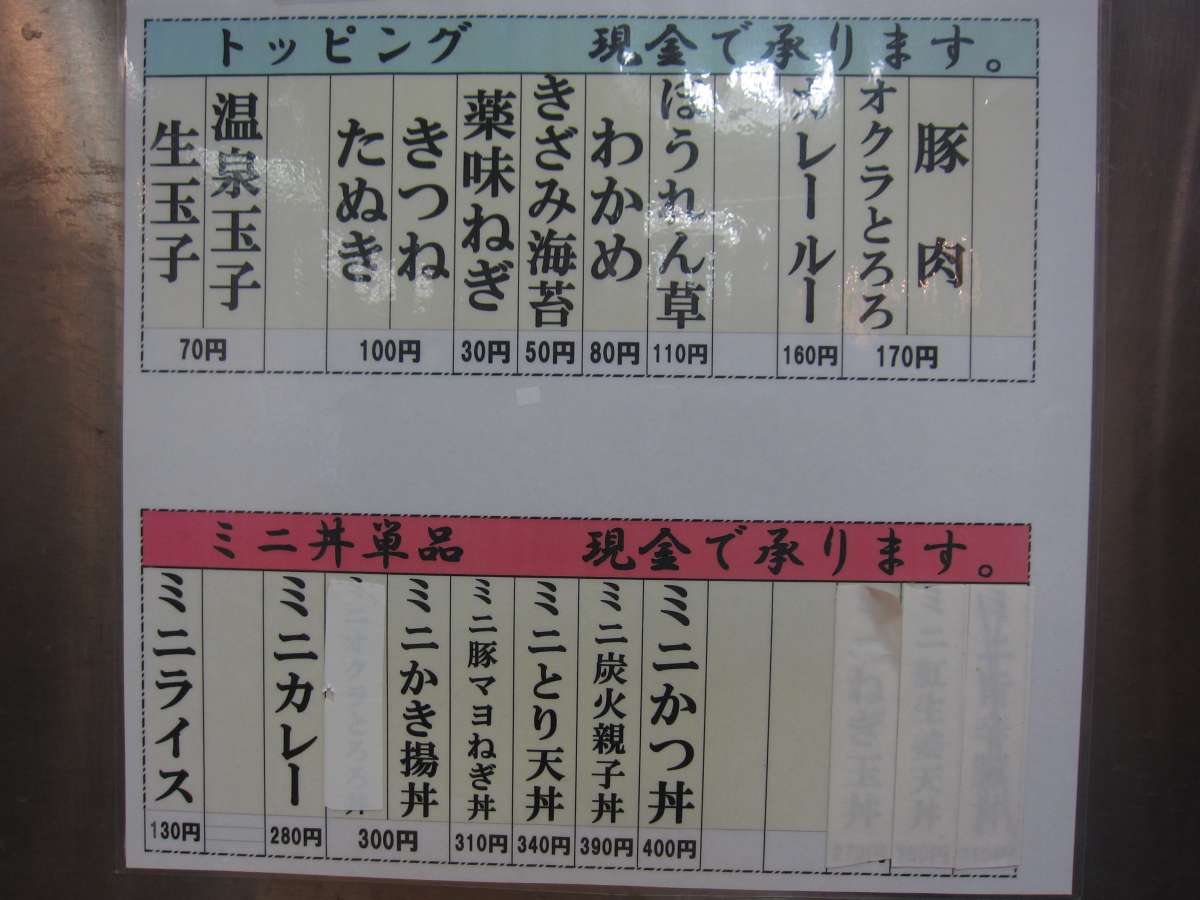 トッピング 現金で承ります。
生玉子
温泉玉子
たぬき
きつね
薬味ねぎ
きざみ海苔
わかめ
ほうれん草
カレールー
オクラとろろ
豚肉
70円 100円 30円 50円 80円 110円 160円 170円
ミニ丼単品 現金で承ります。
ミニライス
ミニカレー
ミニオクラとろろ丼
ミニかき揚丼
ミニ豚マヨねぎ丼
ミニとり天丼
ミニ炭火親子丼
ミニかつ丼
ミニねぎ玉丼
130円 280円 300円 310円 340円 390円 400円